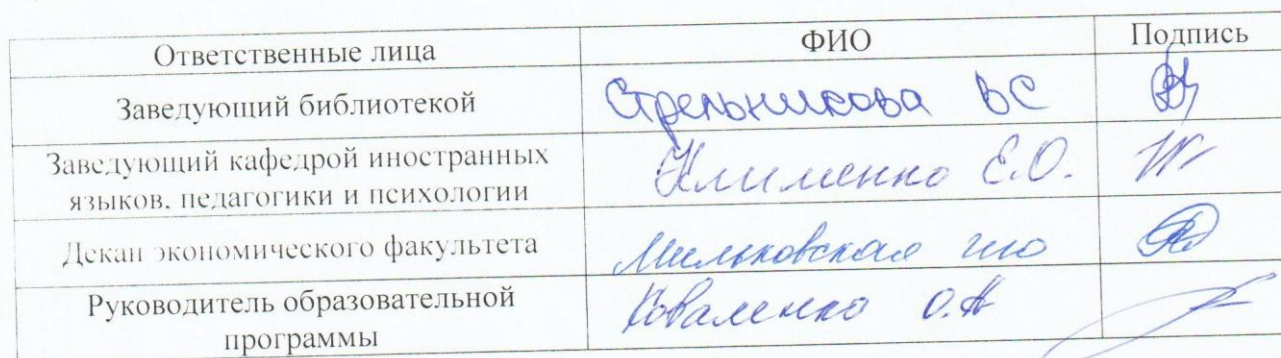 Ответственные лица ФИО Подпись
Заведующий библиотекой Стрельникова ВС
Заведующий кафедрой иностранных
языков, педагогики и психологии Клименко Е.О.
Декан экономического факультета Мильковская
Руководитель образовательной
программы Коваленко О.Н